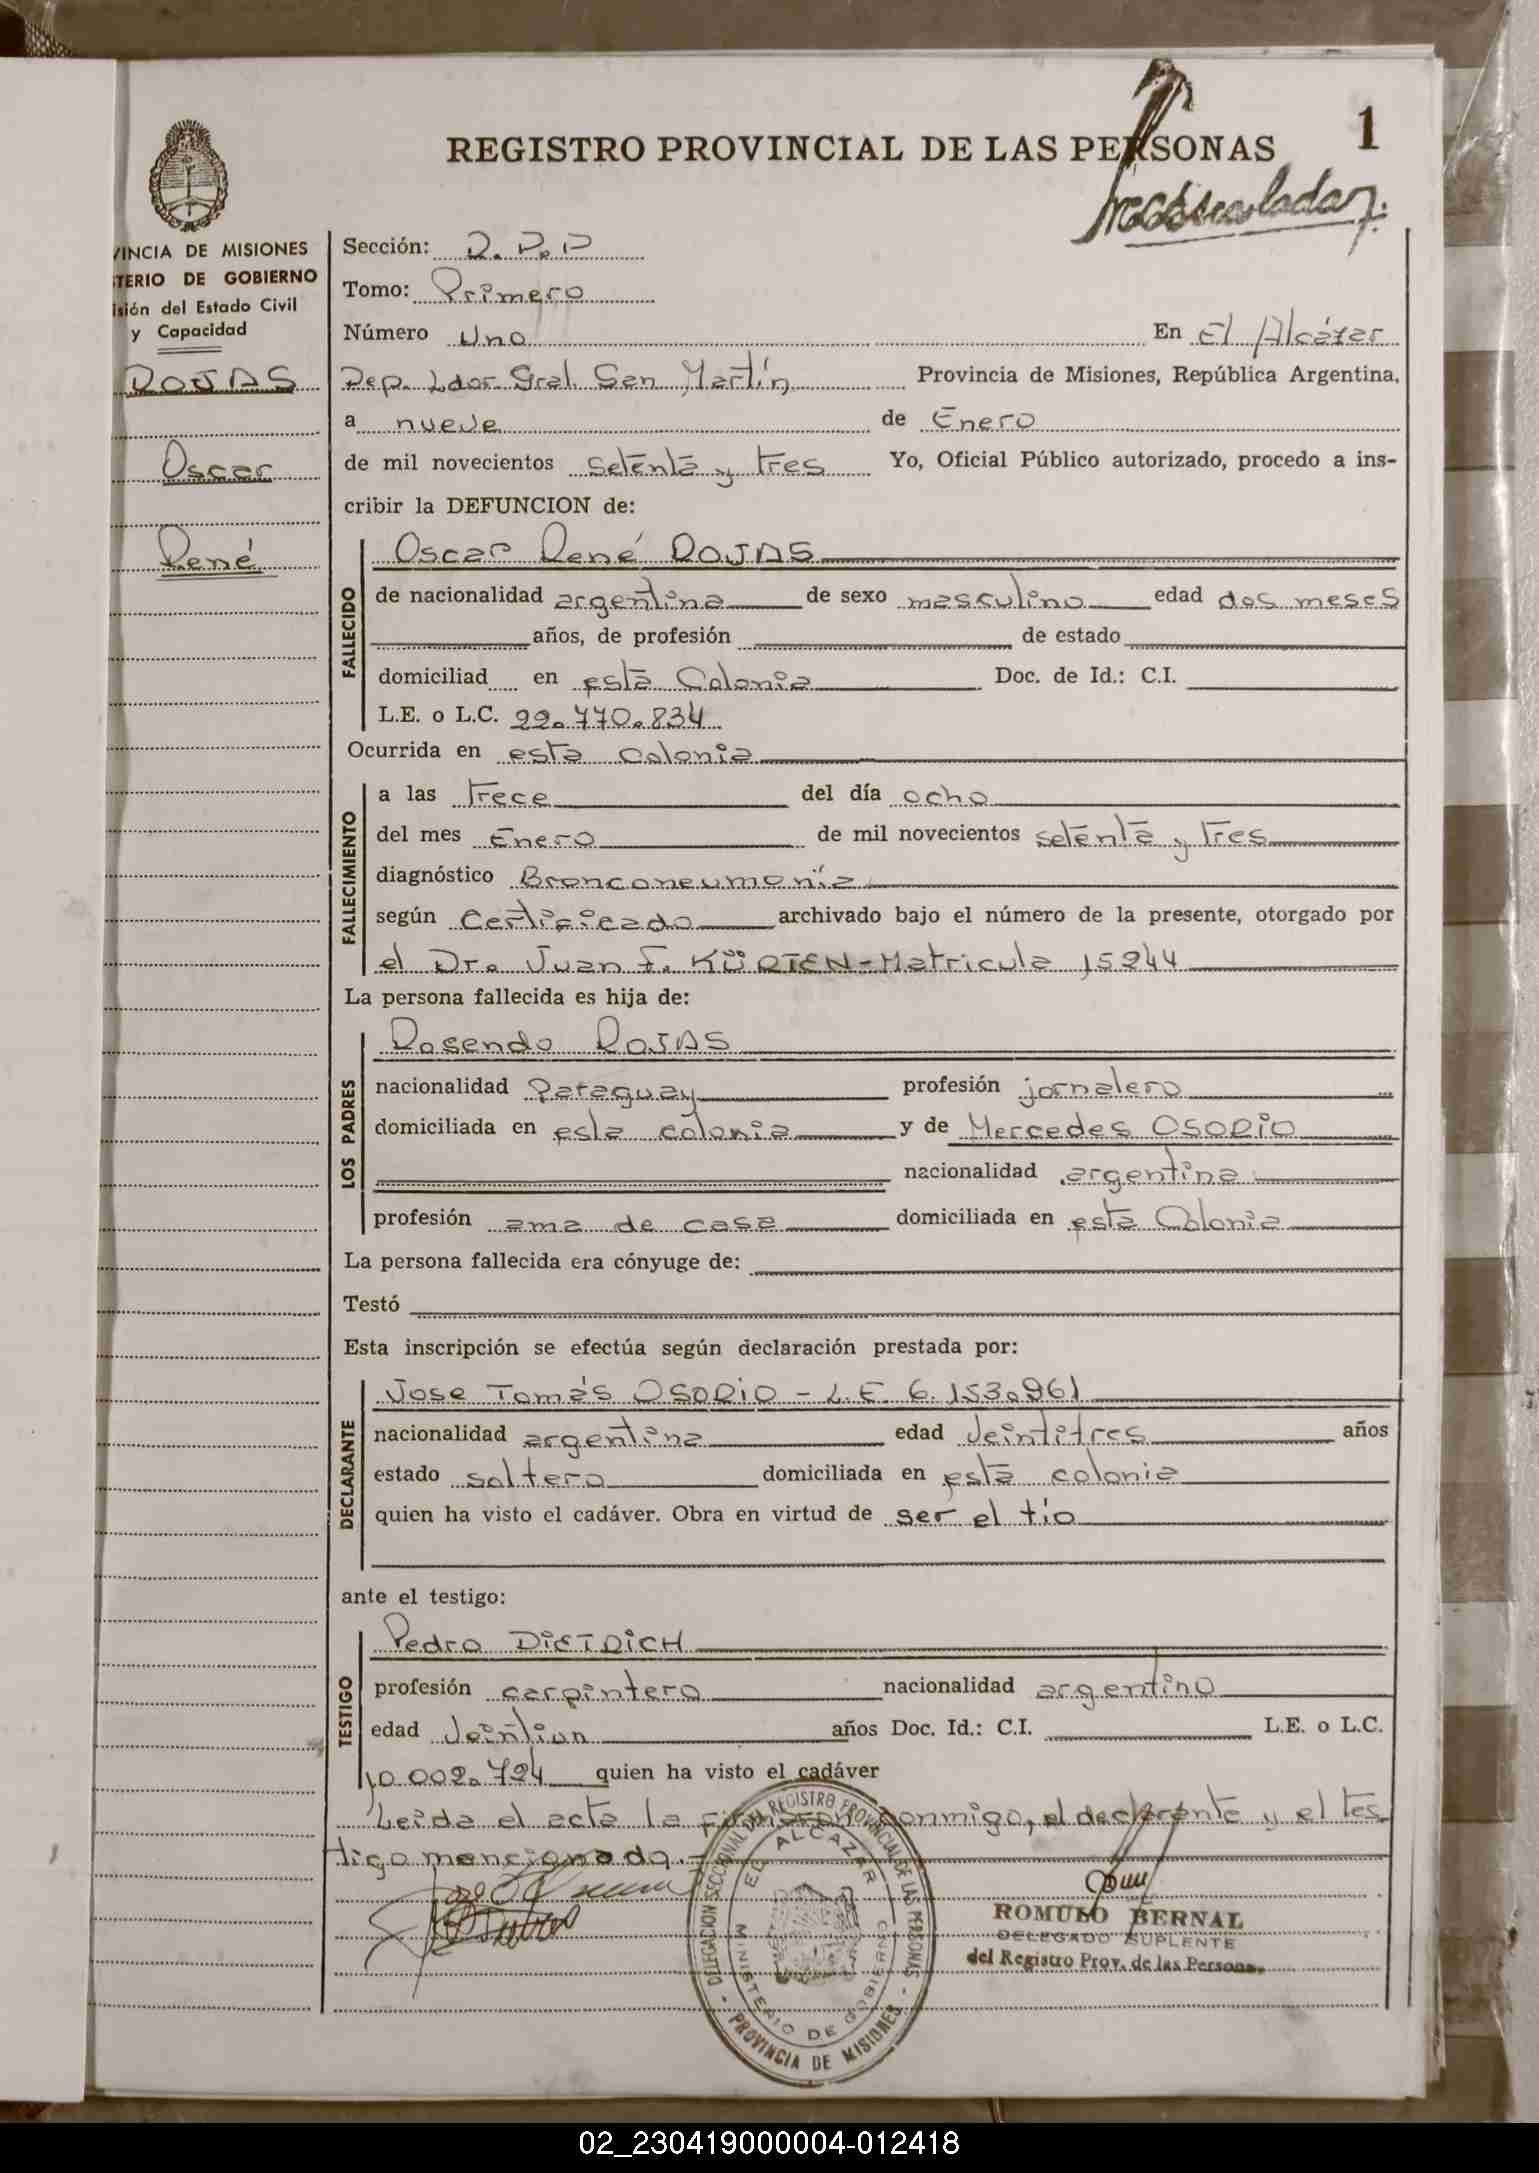 1
REGISTRO PROVINCIAL DE LAS PERSONAS
VINCIA DE MISIONES
TERIO DE GOBIERNO
isión del Estado Civil
y Capacidad
ROJAS
Oscar
René
Sección: R. P. P
Tomo: Primero
Número Uno En El Alcázar
Dep. Ldor. Gral. San Martín Provincia de Misiones, República Argentina,
a nueve de Enero
de mil novecientos setenta y tres Yo, Oficial Público autorizado, procedo a ins-
cribir la DEFUNCION de:
FALLECIDO
Oscar René ROJAS
de nacionalidad argentina de sexo masculino edad dos meses
años, de profesión de estado
domiciliad en esta Colonia Doc. de Id.: C.I.
L.E. o L.C. 22.770.834
Ocurrida en esta colonia
FALLECIMIENTO
a las trece del día ocho
del mes Enero de mil novecientos setenta y tres
diagnóstico Bronconeumonía
según Certificado archivado bajo el número de la presente, otorgado por
el Dr. Juan F. KÜRTEN-Matricula 15244
La persona fallecida es hija de:
LOS PADRES
Rosendo ROJAS
nacionalidad Paraguay profesión jornalero
domiciliada en esta colonia y de Mercedes OSORiO
nacionalidad argentina
profesión ama de casa domiciliada en esta Colonia
La persona fallecida era cónyuge de:
Testó
Esta inscripción se efectúa según declaración prestada por:
DECLARANTE
Jose Tomás OSORiO - L.E. 6.153.961
nacionalidad argentina edad Veintitres años
estado soltero domiciliada en esta colonia
quien ha visto el cadáver. Obra en virtud de ser el tío
ante el testigo:
TESTIGO
Pedro DiETRiCH
profesión carpintero nacionalidad argentino
edad Veintiun años Doc. Id.: C.I. L.E. o L.C.
10.002.724 quien ha visto el cadáver
Leida el acta la firmaron conmigo, el declarante y el tes
tigo mencionado.-
DELEGACION SECCIONAL DEL REGISTRO PROVINCIAL DE LAS PERSONAS
EL ALCAZAR
MINISTERIO DE GOBIERNO
PROVINCIA DE MISIONES
ROMULO BERNAL
DELEGADO SUPLENTE
del Registro Prov. de las Personas
02_230419000004-012418